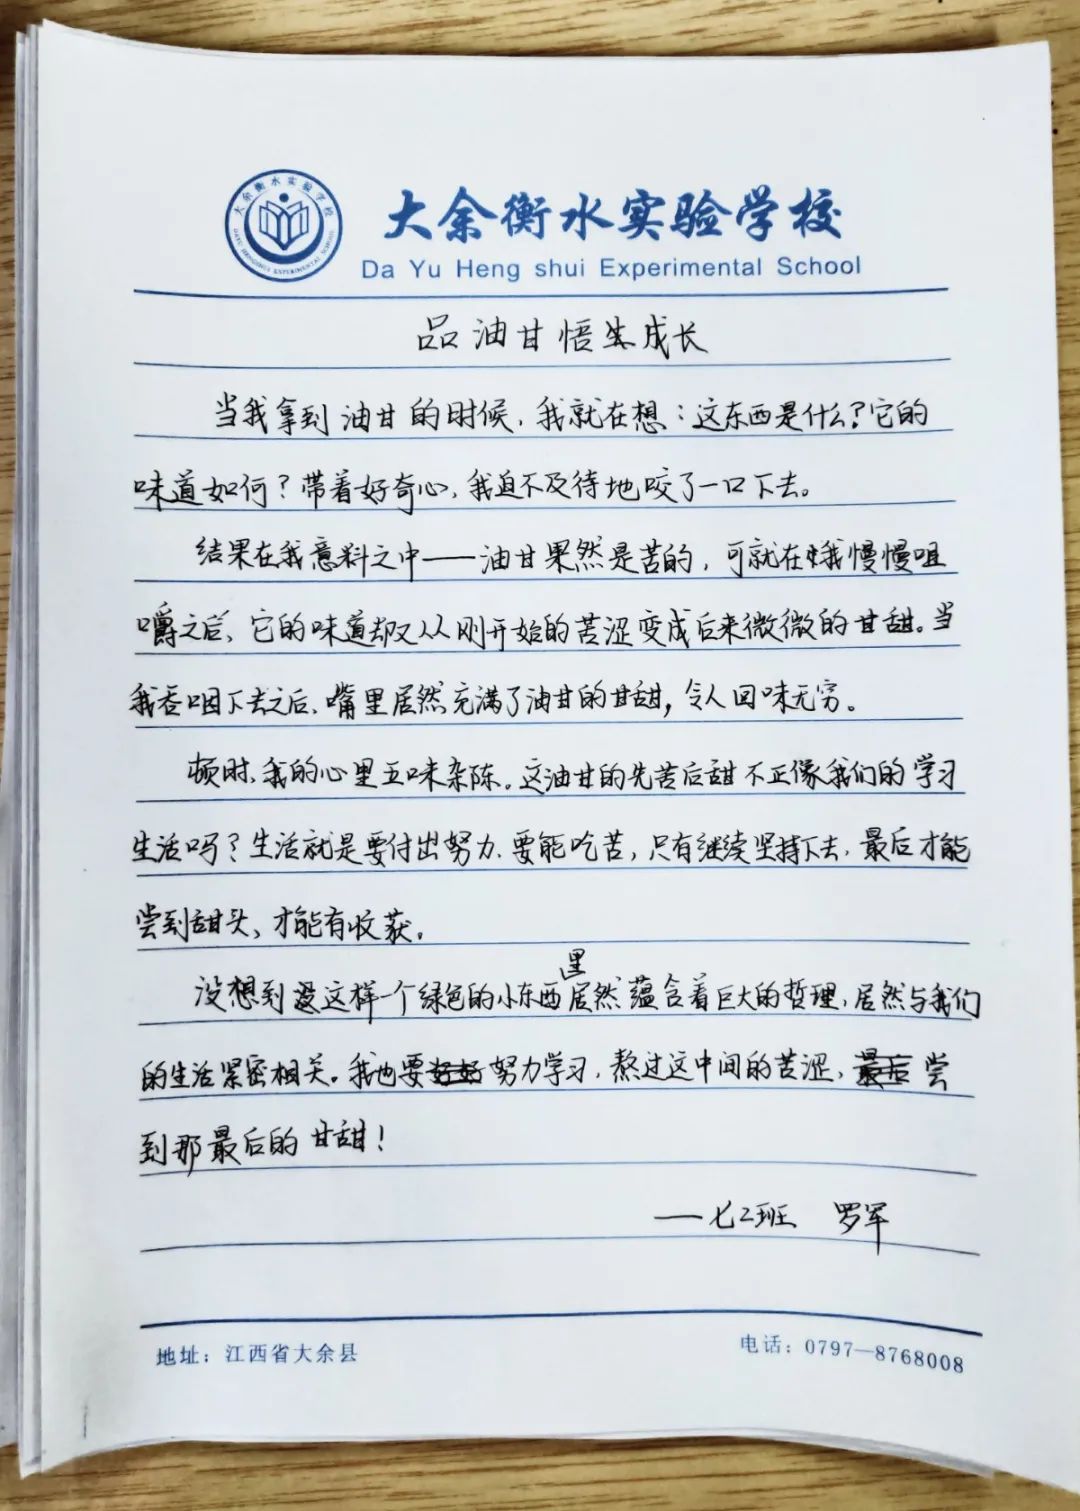 大余衡水实验学校
DAYU HENGSHUI EXPERIMENTAL SCHOOL
大余衡水实验学校
Da Yu Heng shui Experimental School
品油甘悟成长
当我拿到油甘的时候，我就在想：这东西是什么？它的
味道如何？带着好奇心，我迫不及待地咬了一口下去。
结果在我意料之中——油甘果然是苦的，可就在我慢慢咀
嚼之后，它的味道却又从刚开始的苦涩变成后来微微的甘甜。当
我吞咽下去之后，嘴里居然充满了油甘的甘甜，令人回味无穷。
顿时，我的心里五味杂陈。这油甘的先苦后甜不正像我们的学习
生活吗？生活就是要付出努力，要能吃苦，只有继续坚持下去，最后才能
尝到甜头，才能有收获。
没想到这样一个绿色的小东西里居然蕴含着巨大的哲理，居然与我们
的生活紧密相关。我也要努力学习，熬过这中间的苦涩，尝
到那最后的甘甜！
——七2班 罗军
地址：江西省大余县
电话：0797—8768008